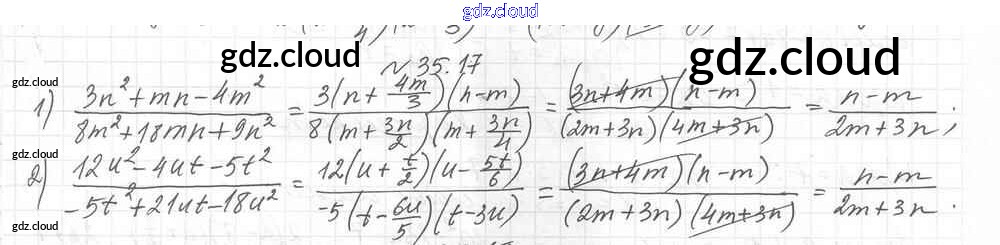 gdz.cloud
№ 35.17
gdz.cloud gdz.cloud
gdz.cloud gdz.cloud
1) \frac{3n^2+mn-4m^2}{8m^2+18mn+9n^2} = \frac{3(n+\frac{4m}{3})(n-m)}{8(m+\frac{3n}{2})(m+\frac{3n}{4})} = \frac{(3n+4m)(n-m)}{(2m+3n)(4m+3n)} = \frac{n-m}{2m+3n};
gdz.cloud gdz.cloud
2) \frac{12u^2-4ut-5t^2}{-5t^2+21ut-18u^2} = \frac{12(u+\frac{t}{2})(u-\frac{5t}{6})}{-5(t-\frac{6u}{5})(t-3u)} = \frac{(3n+4m)(n-m)}{(2m+3n)(4m+3n)} = \frac{n-m}{2m+3n}.
gdz.cloud gdz.cloud